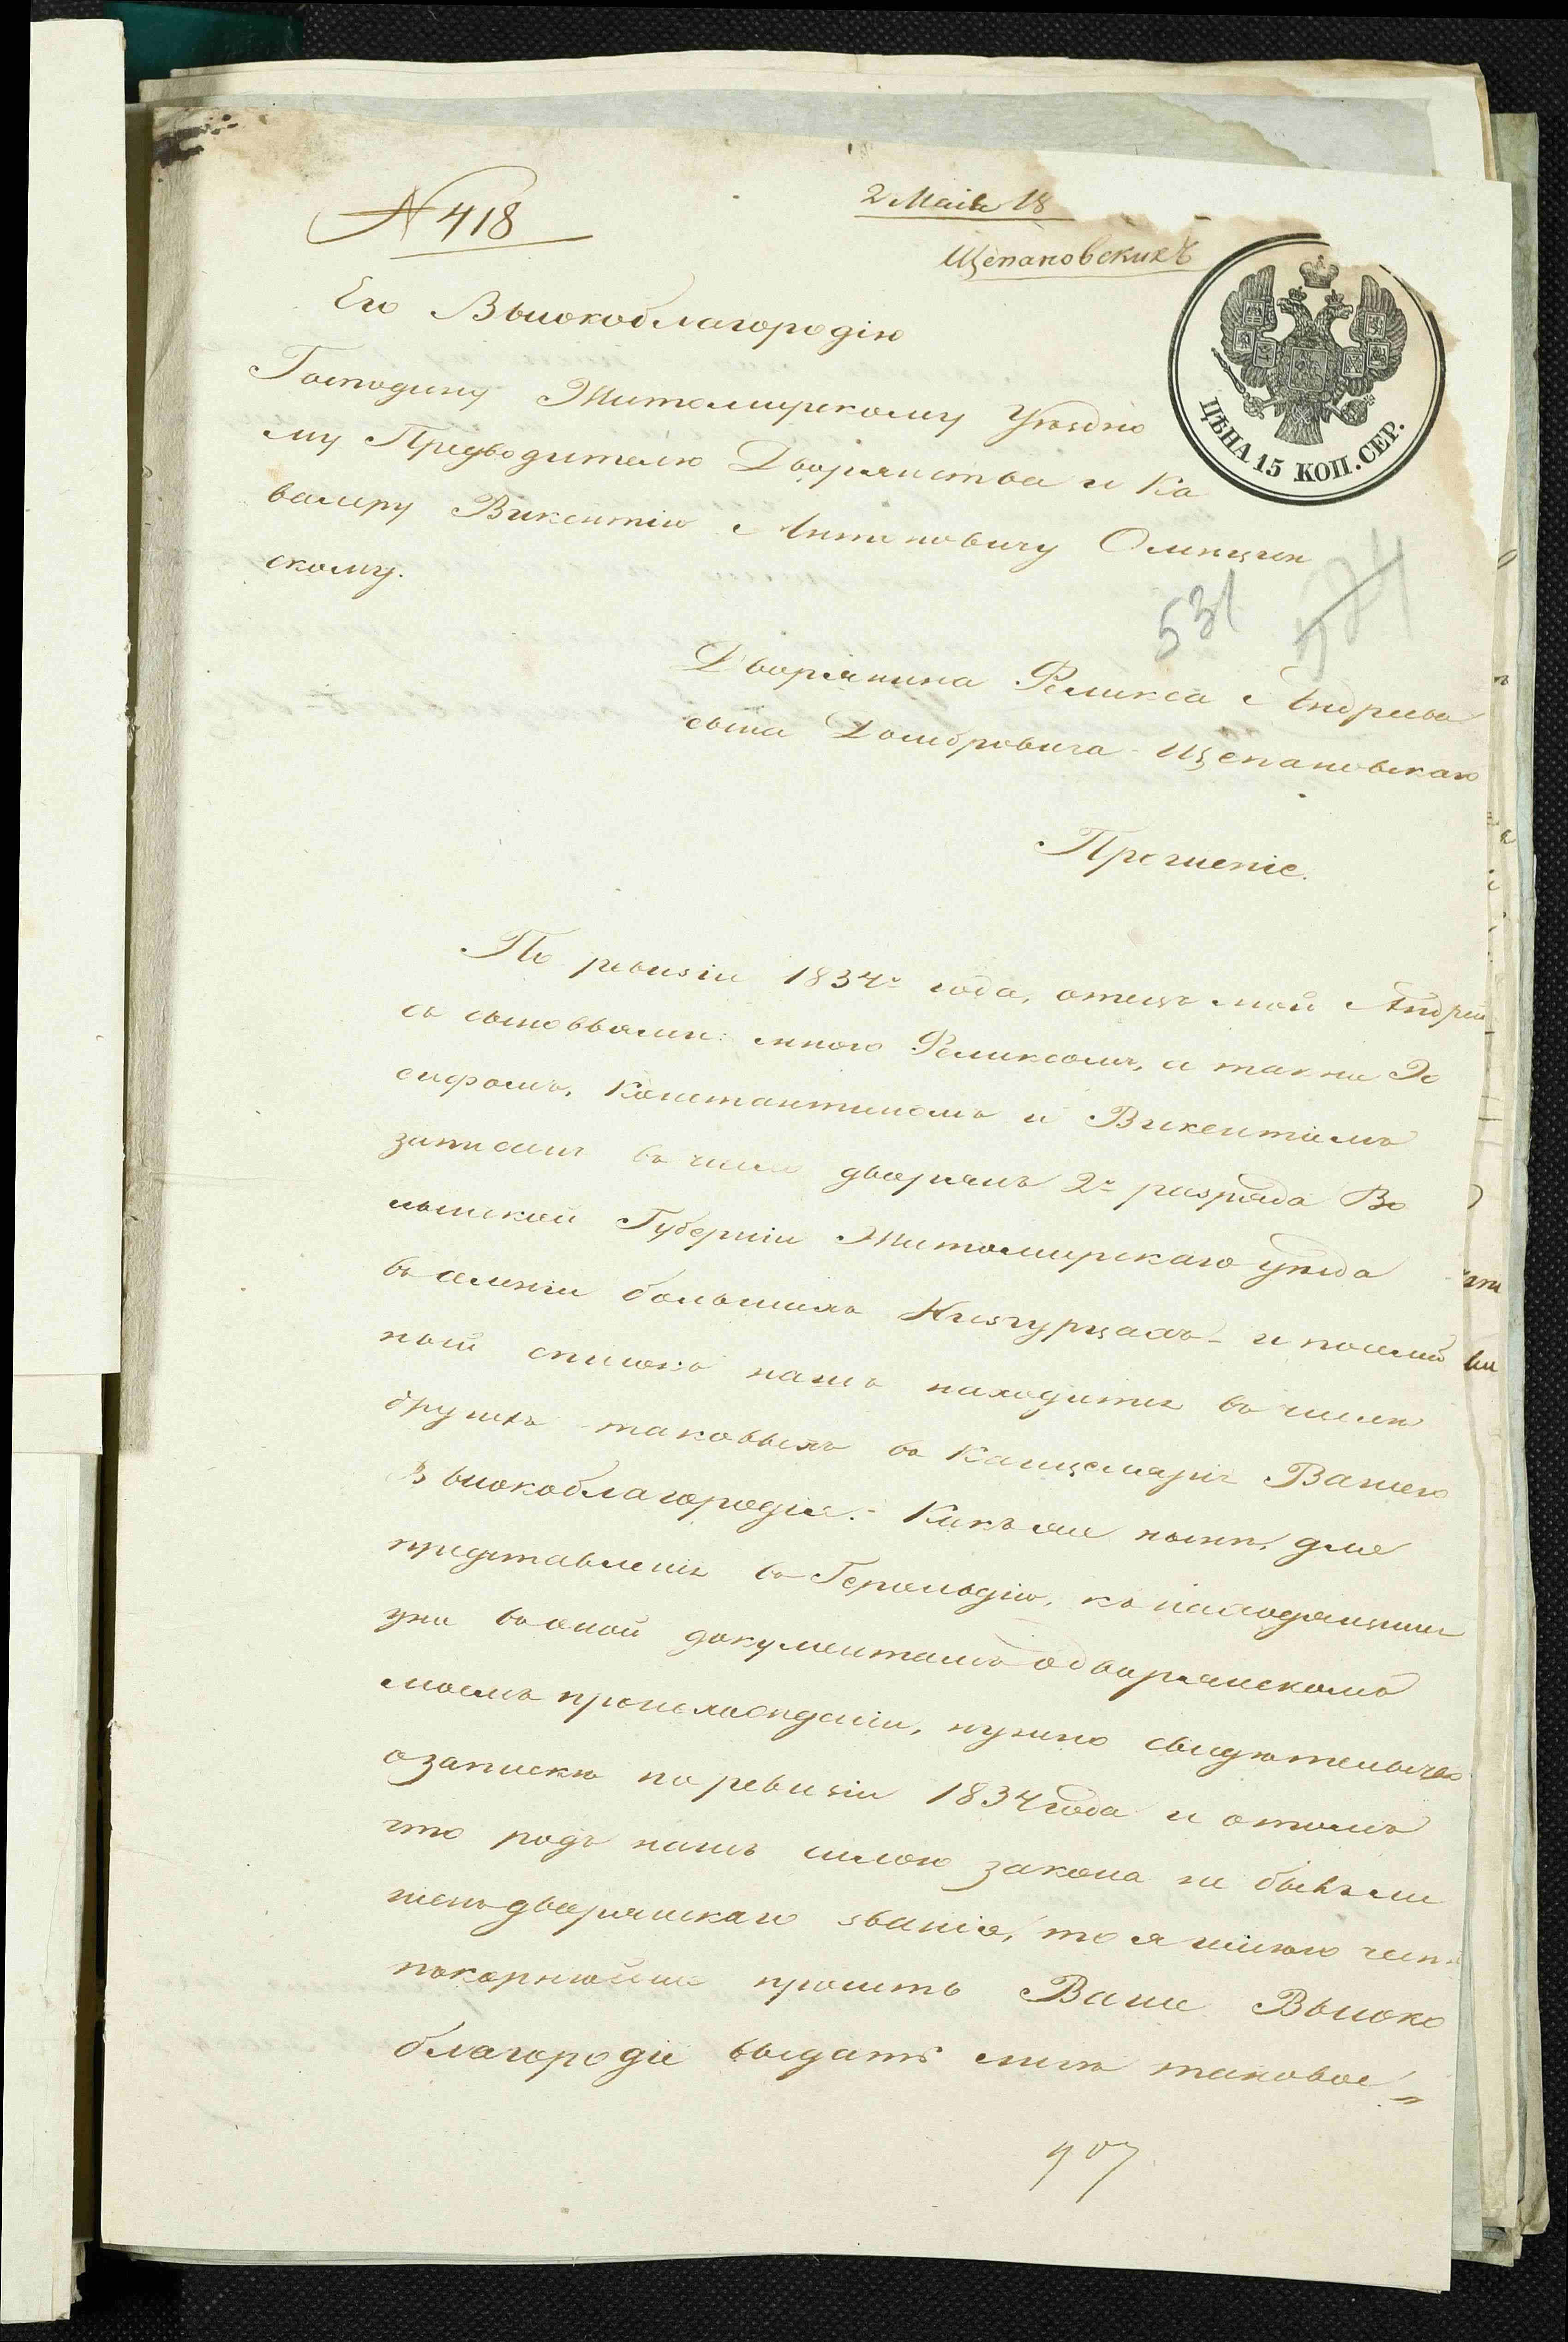 № 418
2 Маія 18
Щепановскихъ
ЦѢНА 15 КОП. СЕР.
Его Высокоблагородію
Господину Житомирскому Уѣздно
му Предводителю Дворянства и Ка
валеру Викентію Антоновичу Омецин
скому.
531
524
Дворянина Феликса Андреева
сына Домбровича-Щепановскаго
Прошеніе.
По ревизіи 1834го года, отецъ мой Андрей
съ сыновьями: мною Феликсомъ, а также Іо
сифомъ, Константиномъ и Викентіемъ
записанъ въ число дворянъ 2го разряда Во
лынской Губерніи Житомирскаго уѣзда
въ селеніи большихъ Низгурцахъ и посемей
ный списокъ нашъ находится въ числѣ
другихъ таковыхъ въ Канцеляріи Вашего
Высокоблагородія.- Какъ же нынѣ, для
представленія въ Герольдію, къ находящимся
уже въ оной документамъ о дворянскомъ
моемъ происхожденіи, нужно свидѣтельство
о запискѣ по ревизіи 1834 года и о томъ
что родъ нашъ силою закона не былъ ли
шенъ дворянскаго званія, то я имѣю честь
покорнѣйше просить Ваше Высоко
благородіе выдать мнѣ таковое.
907